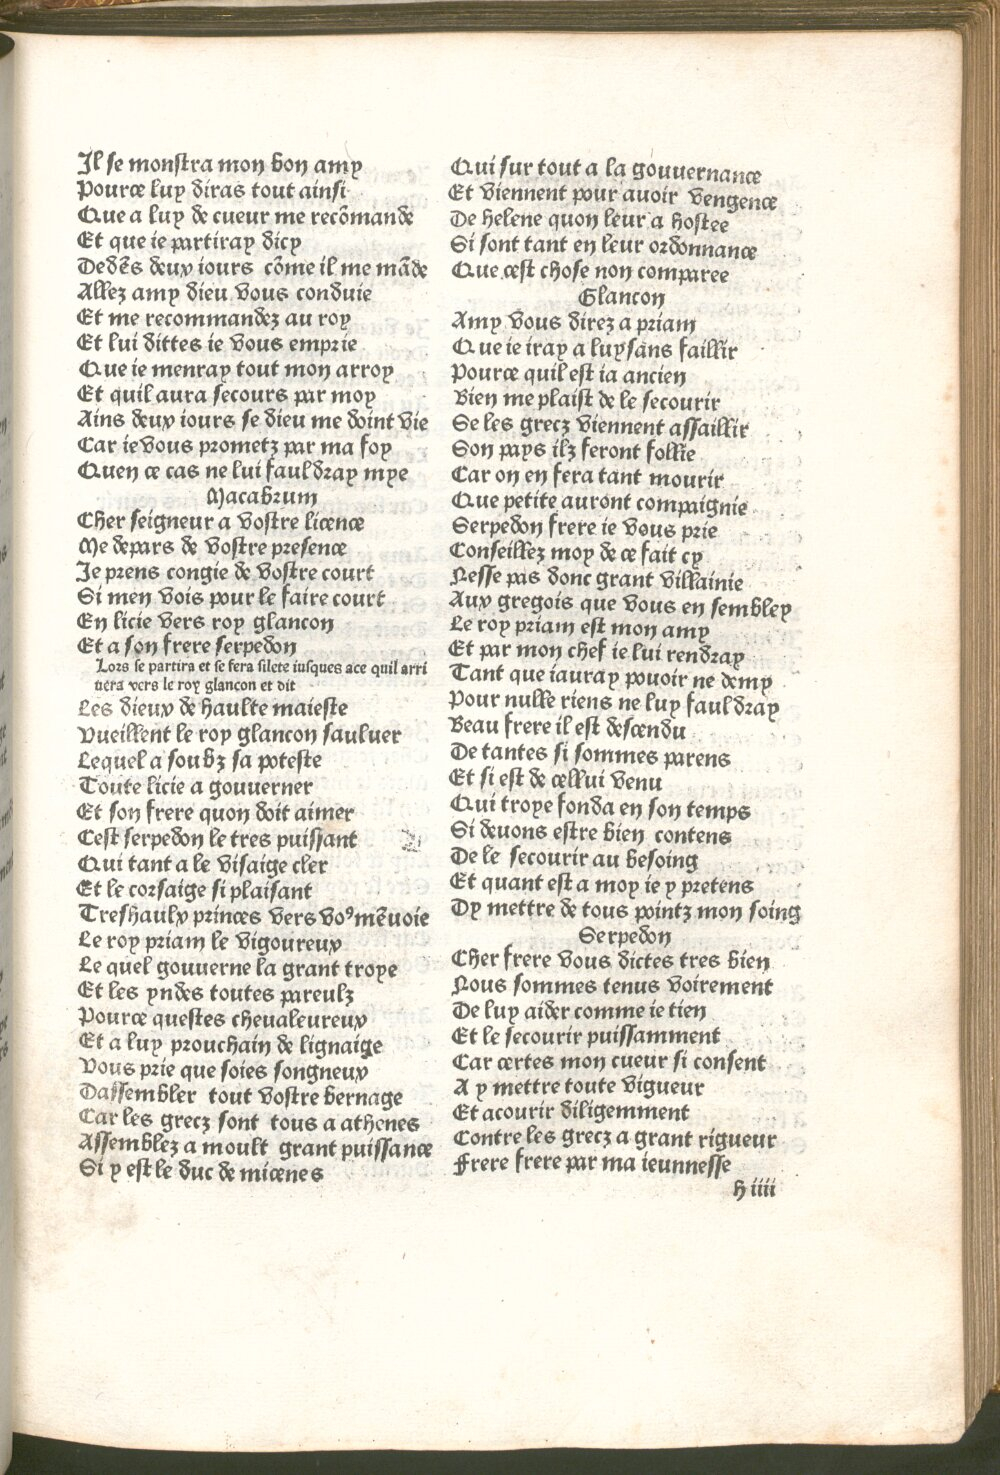 Il se monstra mon bon amy
Pource luy diras tout ainsi
Que a luy de cueur me recõmande
Et que ie partiray dicy
Dedẽs deux iours cõme il me mãde
Allez amy dieu vous conduie
Et me recommandez au roy
Et lui dittes ie vous emprie
Que ie menray tout mon arroy
Et quil aura secours par moy
Ains deux iours se dieu me doint vie
Car ie vous prometz par ma foy
Quen ce cas ne lui fauldray mye
Macabrum
Cher seigneur a vostre licence
Me depars de vostre presence
Je prens congie de vostre court
Si men vois pour le faire court
En licie vers roy glancon
Et a son frere serpedon
Lors se partira et se fera silete iusques ace quil arri
uera vers le roy glancon et dit
Les dieux de haulte maieste
Vueillent le roy glancon sauluer
Lequel a soubz sa poteste
Toute licie a gouuerner
Et son frere quon doit aimer
Cest serpedon le tres puissant
Qui tant a le visaige cler
Et le corsaige si plaisant
Treshaulx princes vers voꝰ mẽuoie
Le roy priam le vigoureux
Le quel gouuerne la grant troye
Et les yndes toutes pareulz
Pource questes cheualeureux
Et a luy prouchain de lignaige
Vous prie que soies songneux
Dassembler tout vostre bernage
Car les grecz sont tous a athenes
Assemblez a moult grant puissance
Si y est le duc de micenes
Qui sur tout a la gouuernance
Et viennent pour auoir vengence
De helene quon leur a hostee
Si sont tant en leur ordonnance
Que cest chose non comparee
Glancon
Amy vous direz a priam
Que ie iray a luy sans faillir
Pource quil est ia ancien
Bien me plaist de le secourir
Se les grecz viennent assaillir
Son pays ilz feront follie
Car on en fera tant mourir
Que petite auront compaignie
Serpedon frere ie vous prie
Conseillez moy de ce fait cy
Nesse pas donc grant villainie
Aux gregois que vous en sembley
Le roy priam est mon amy
Et par mon chef ie lui rendray
Tant que iauray pouoir ne demy
Pour nulle riens ne luy fauldray
Beau frere il est descendu
De tantes si sommes parens
Et si est de cellui venu
Qui troye fonda en son temps
Si deuons estre bien contens
De le secourir au besoing
Et quant est a moy ie y pretens
Dy mettre de tous pointz mon soing
Serpedon
Cher frere vous dictes tres bien
Nous sommes tenus voirement
De luy aider comme ie tien
Et le secourir puissamment
Car certes mon cueur si consent
A y mettre toute vigueur
Et acourir diligemment
Contre les grecz a grant rigueur
Frere frere par ma ieunnesse
h iiii